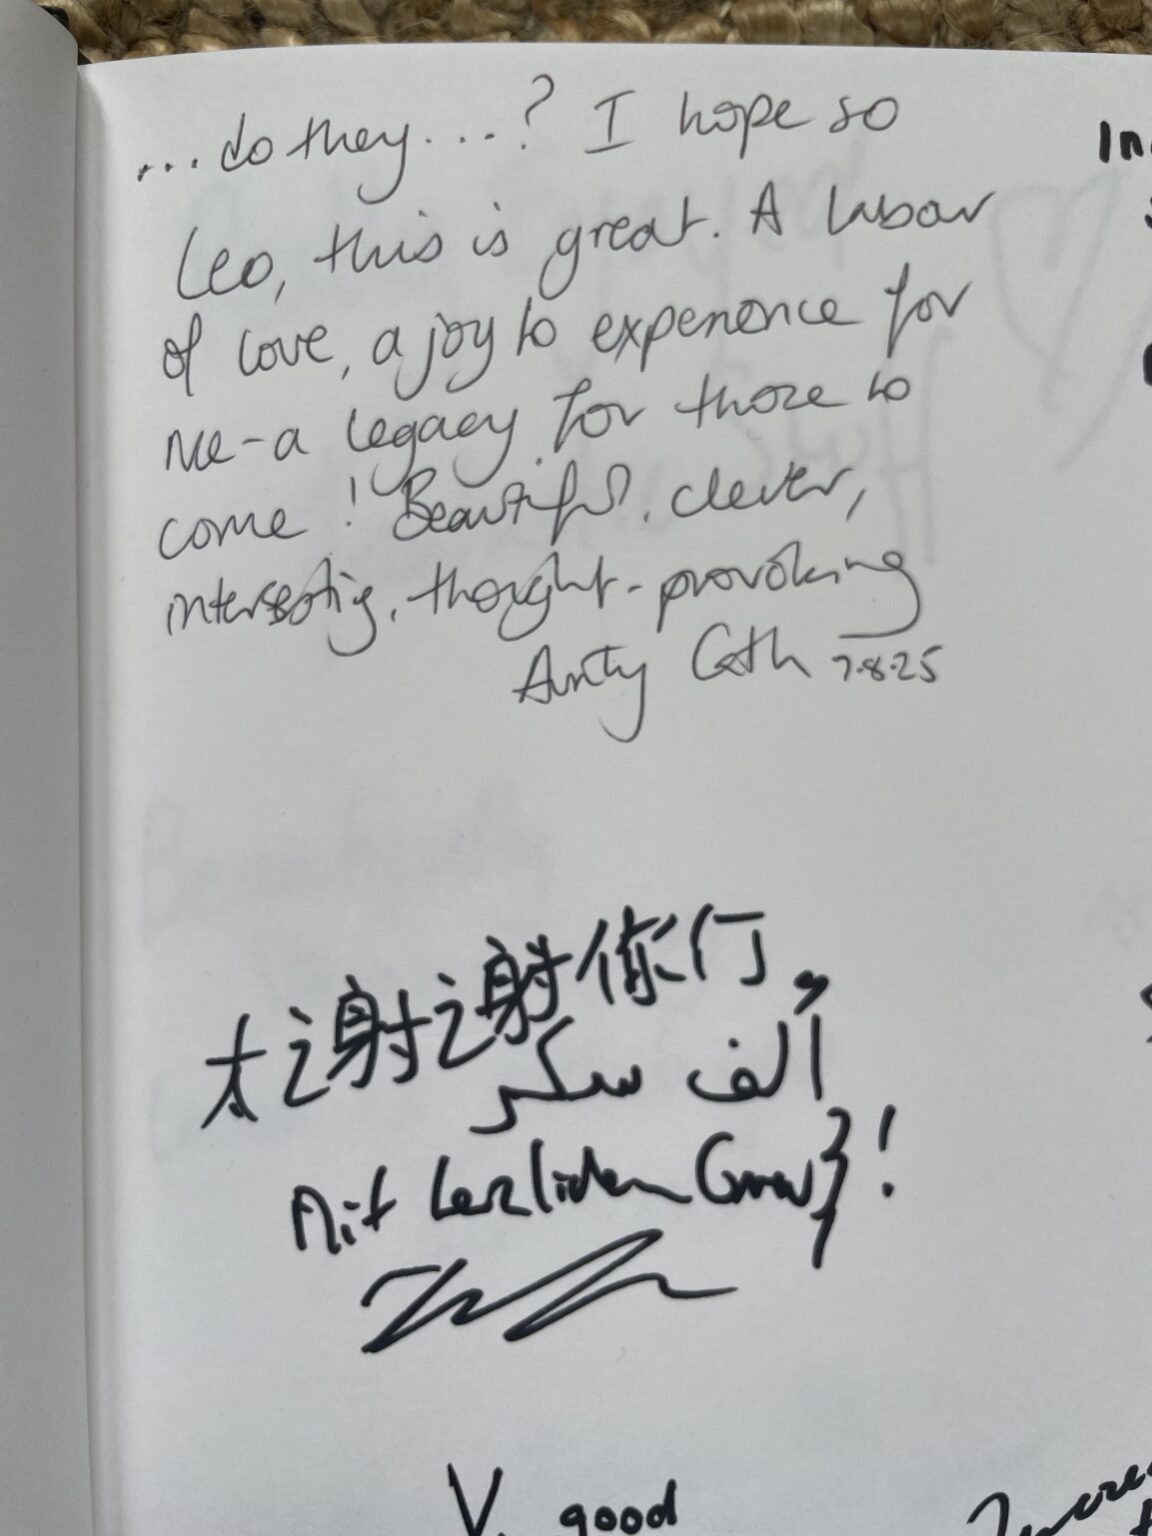 ...do they....? I hope so
Leo, this is great. A labour
of love, a joy to experience for
me - a legacy for those to
come! Beautiful, clever,
interesting, thought-provoking
Aunty Cath 7.8.25
太谢谢你们,
ألف شكر
Mit herzlichem Gruß!
V. good
In